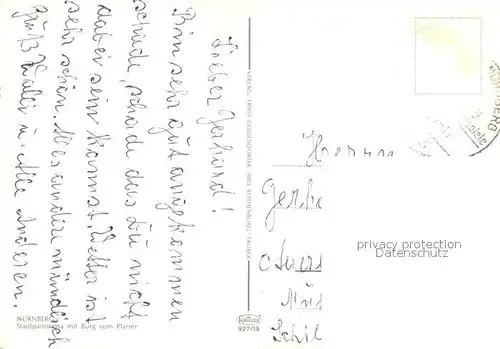 Lieber Gerhard!
Bin sehr gut angekommen
schade, schade das Du nicht
dabei sein kannst. Wetter ist
sehr schön. Alles andere mündlich
Grüß Walli u. Alle Anderen.
NÜRNBERG
Stadtpanorama mit Burg vom Plärrer
VERLAG ERNST GEISSENDÖRFER, 8803 ROTHENBURG/TAUBER
KRÜGER
927/19
Herrn
Gerha
privacy protection
Datenschutz
Schil